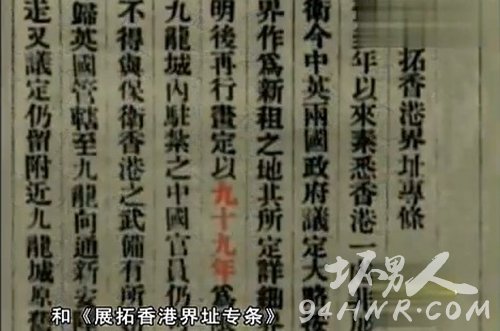 拓香港界址專條
年以來素悉香港一
衛今中英兩國政府議定大略
界作爲新租之地其所定詳細
明後再行畫定以九十九年爲
九龍城內駐紮之中國官員仍
不得與保衛香港之武備有所
歸英國管轄至九龍向通新安
走又議定仍留附近九龍城原
和《展拓香港界址专条》
坏男人
94HNR.COM